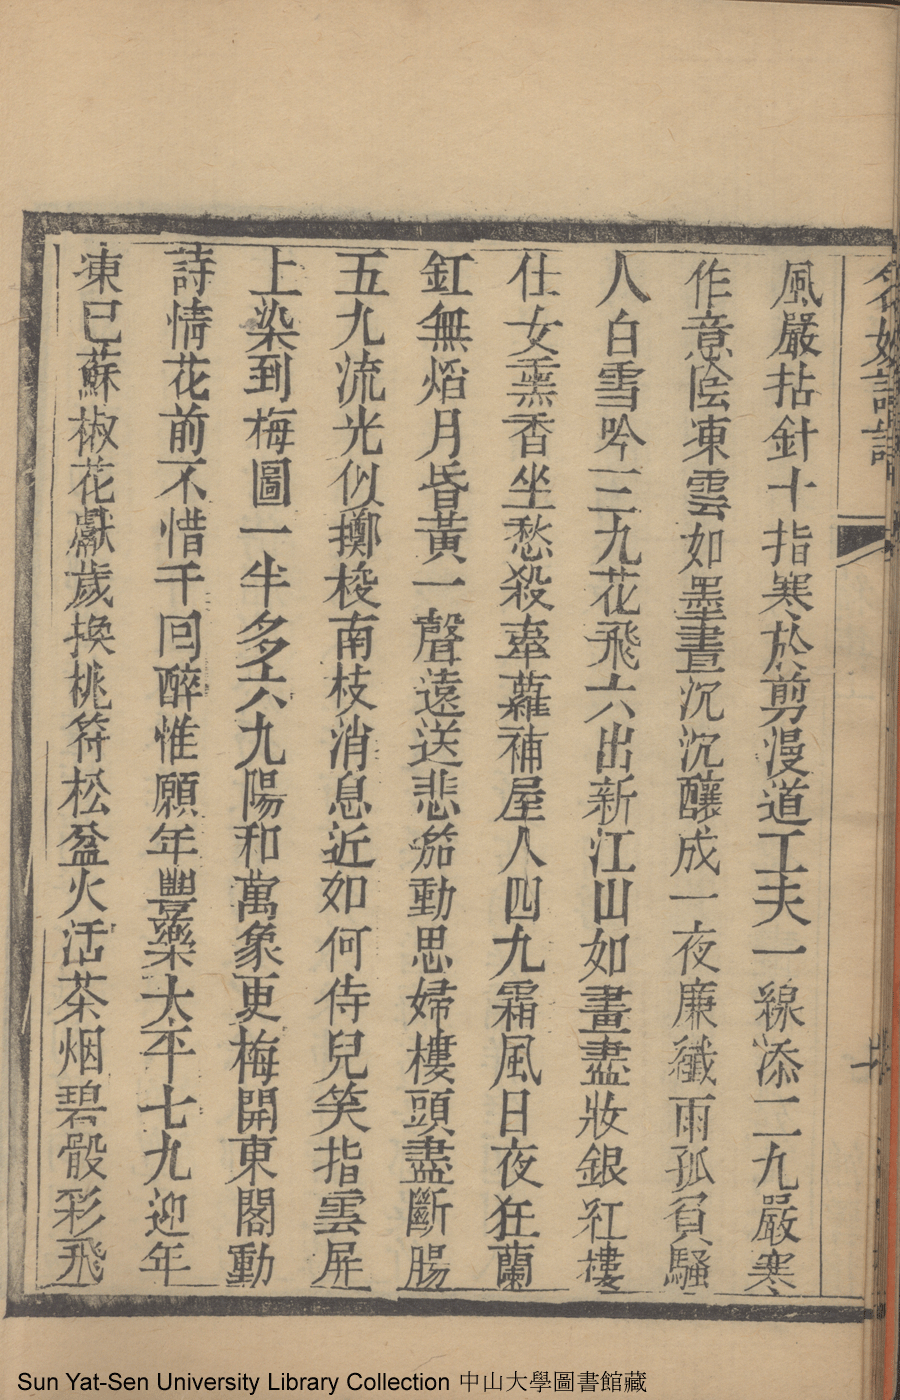 風嚴拈針十指寒於剪漫道工夫一線添二九嚴寒
作意陰凍雲如墨晝沉沉釀成一夜廉纖雨孤負騷
人白雪吟三九花飛六出新江山如畫盡妝銀紅樓
仕女熏香坐愁殺牽蘿補屋人四九霜風日夜狂蘭
釭無熖月昏黃一聲遠送悲笳動思婦樓頭盡斷腸
五九流光似擲梭南枝消息近如何侍兒笑指雲屏
上染到梅圖一半多六九陽和萬象更梅開東閣動
詩情花前不惜千囘醉惟願年豐樂太平七九迎年
凍已蘇椒花獻歲換桃符松盆火活茶烟碧骰彩飛
Sun Yat-Sen University Library Collection 中山大學圖書館藏